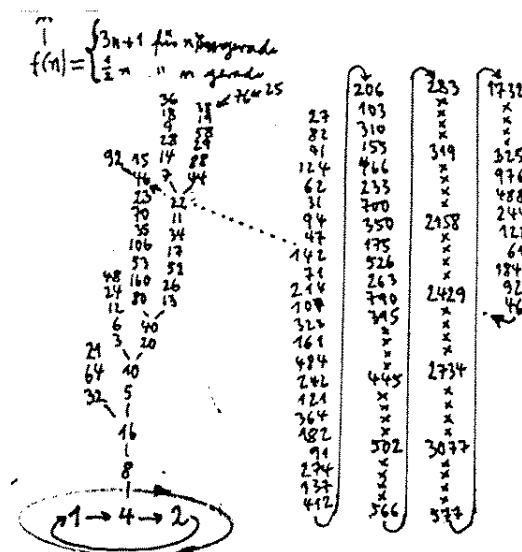 f(n) = { 3n+1 für n ungerade
1/2 n " n gerade
36
18
9
28
14
7
38
19
58
29
88
44
76 ← 25
22
11
34
17
52
26
13
92
15
46
23
70
35
106
53
160
80
40
20
48
24
12
6
3
10
5
21
64
32
16
8
1 → 4 → 2
27
82
91
124
62
31
94
47
142
71
214
107
323
161
484
242
121
364
182
91
274
137
412
206
103
310
155
466
233
700
350
175
526
263
790
395
x
x
x
x
445
x
x
x
x
502
x
x
x
x
566
283
x
x
x
x
319
x
x
x
x
2158
x
x
x
x
2429
x
x
x
x
2734
x
x
x
x
3077
x
x
x
x
577
1732
x
x
x
x
325
976
488
244
122
61
184
92
46